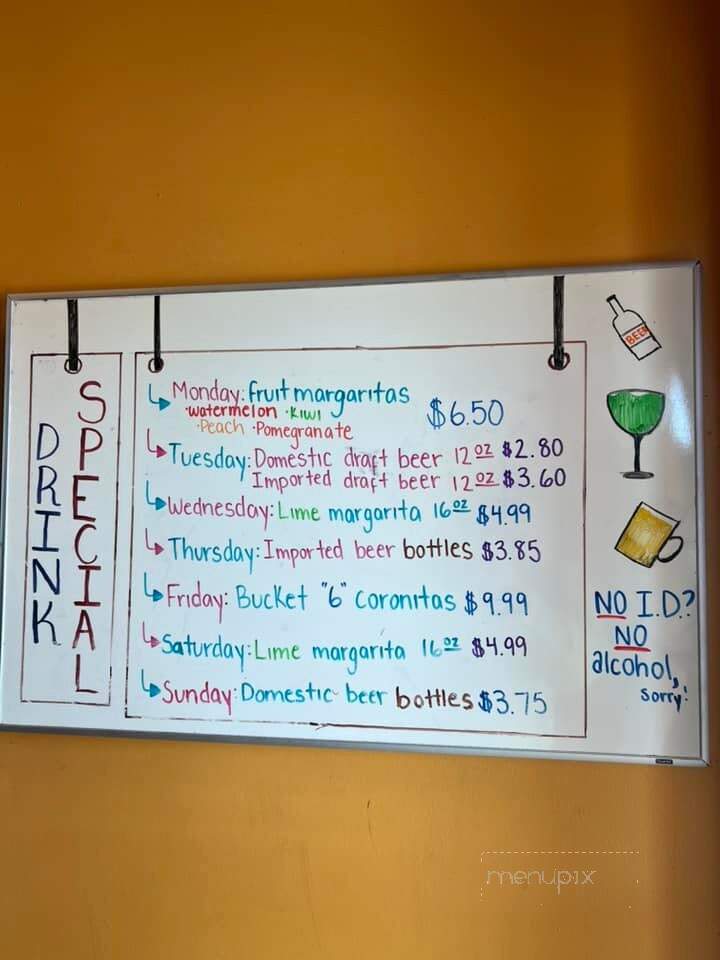 DRINK
SPECIAL
Monday: fruit margaritas
·watermelon ·Kiwi
·Peach ·Pomegranate
$6.50
Tuesday: Domestic draft beer 12oz $2.80
Imported draft beer 12oz $3.60
Wednesday: Lime margarita 16oz $4.99
Thursday: Imported beer bottles $3.85
Friday: Bucket "6" coronitas $9.99
Saturday: Lime margarita 16oz $4.99
Sunday: Domestic beer bottles $3.75
BEER
NO I.D.?
NO
alcohol,
sorry!
menupix